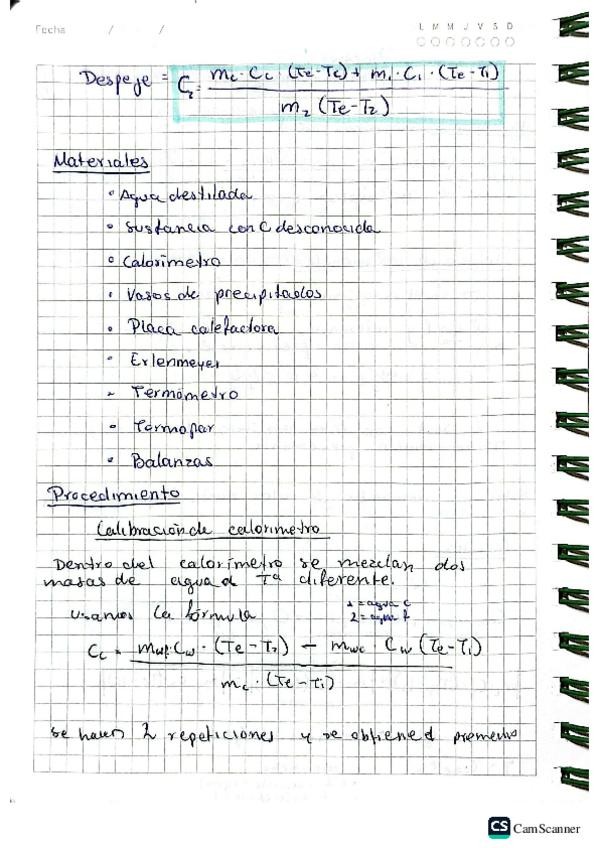 Fecha / /
L M M J V S D
Despeje = C₂ = mc · Cc · (Te-Tc) + m₁ · C₁ · (Te-T₁)
m₂ (Te-T₂)
Materiales
• Agua destilada
• Sustancia con C desconocida
• Calorimetro
• Vasos de precipitados
• Placa calefactora
• Erlenmeyer
- Termómetro
• Termopar
• Balanzas
Procedimiento
Calibración de calorimetro
Dentro del calorímetro se mezclan dos
masas de agua a Tª diferente.
usamos la fórmula
1 = agua c
2 = agua f
Cc = mwf · Cw · (Te-T₂) - mwc · Cw (Te-T₁)
mc · (Te-T₁)
se hacen 2 repeticiones y se obtiene el
CS CamScanner